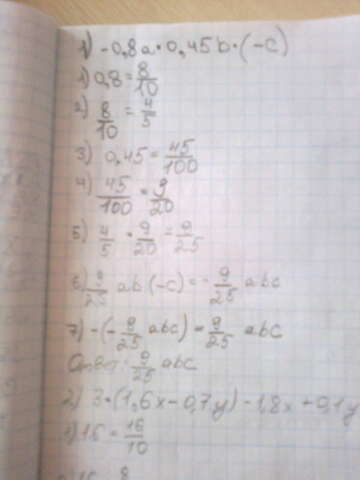 1) -0,8a·0,45b·(-c)
1) 0,8 = 8/10
2) 8/10 = 4/5
3) 0,45 = 45/100
4) 45/100 = 9/20
5) 4/5 · 9/20 = 9/25
6) 9/25 ab(-c) = -9/25 abc
7) -(-9/25 abc) = 9/25 abc
Ответ: 9/25 abc
2) 3·(1,6x-0,7y)-1,8x+0,1y
1) 1,6 = 16/10